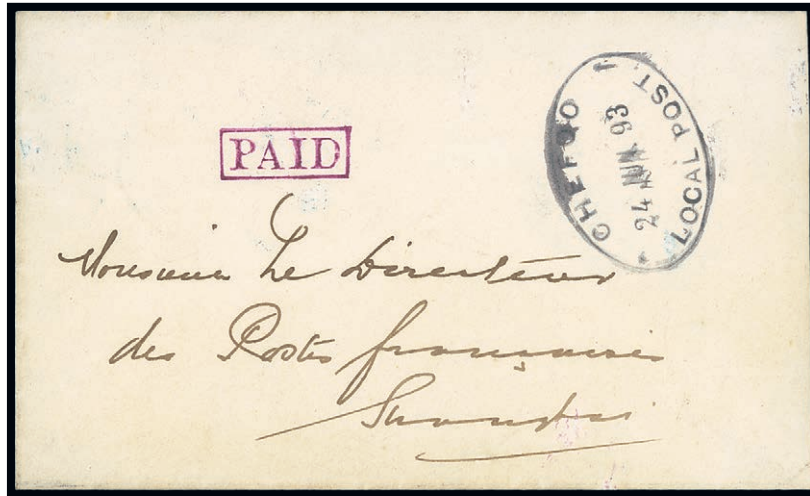 PAID
CHEFOO
LOCAL POST
24 JUN 93
Monsieur Le Directeur
des Postes françaises
Shanghai